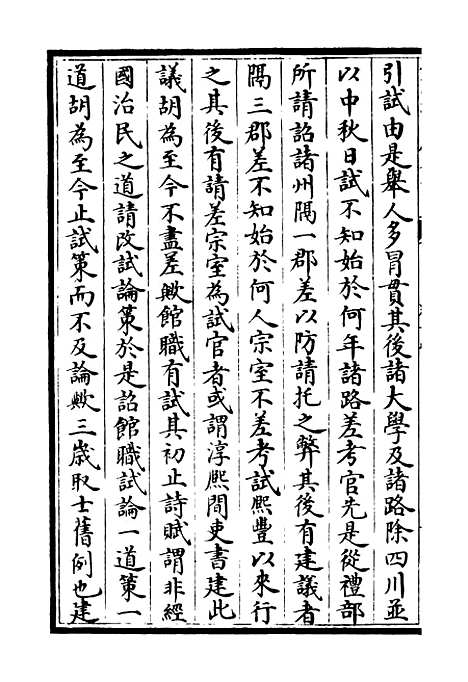 引試由是舉人多冒貫其後諸大學及諸路除四川並
以中秋日試不知始於何年諸路差考官先是從禮部
所請詔諸州隅一郡差以防請托之弊其後有建議者
隅三郡差不知始於何人宗室不差考試熈豐以來行
之其後有請差宗室為試官者或謂淳熈間吏書建此
議胡為至今不盡差歟館職有試其初止詩賦謂非經
國治民之道請改試論策於是詔館職試論一道策一
道胡為至今止試策而不及論歟三歳取士舊例也建